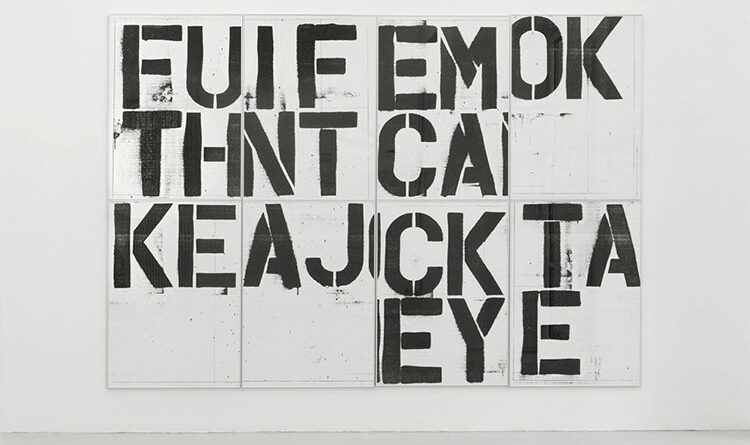 FUIF EMOK
THNT CAI
KEAJCK TA
EYE